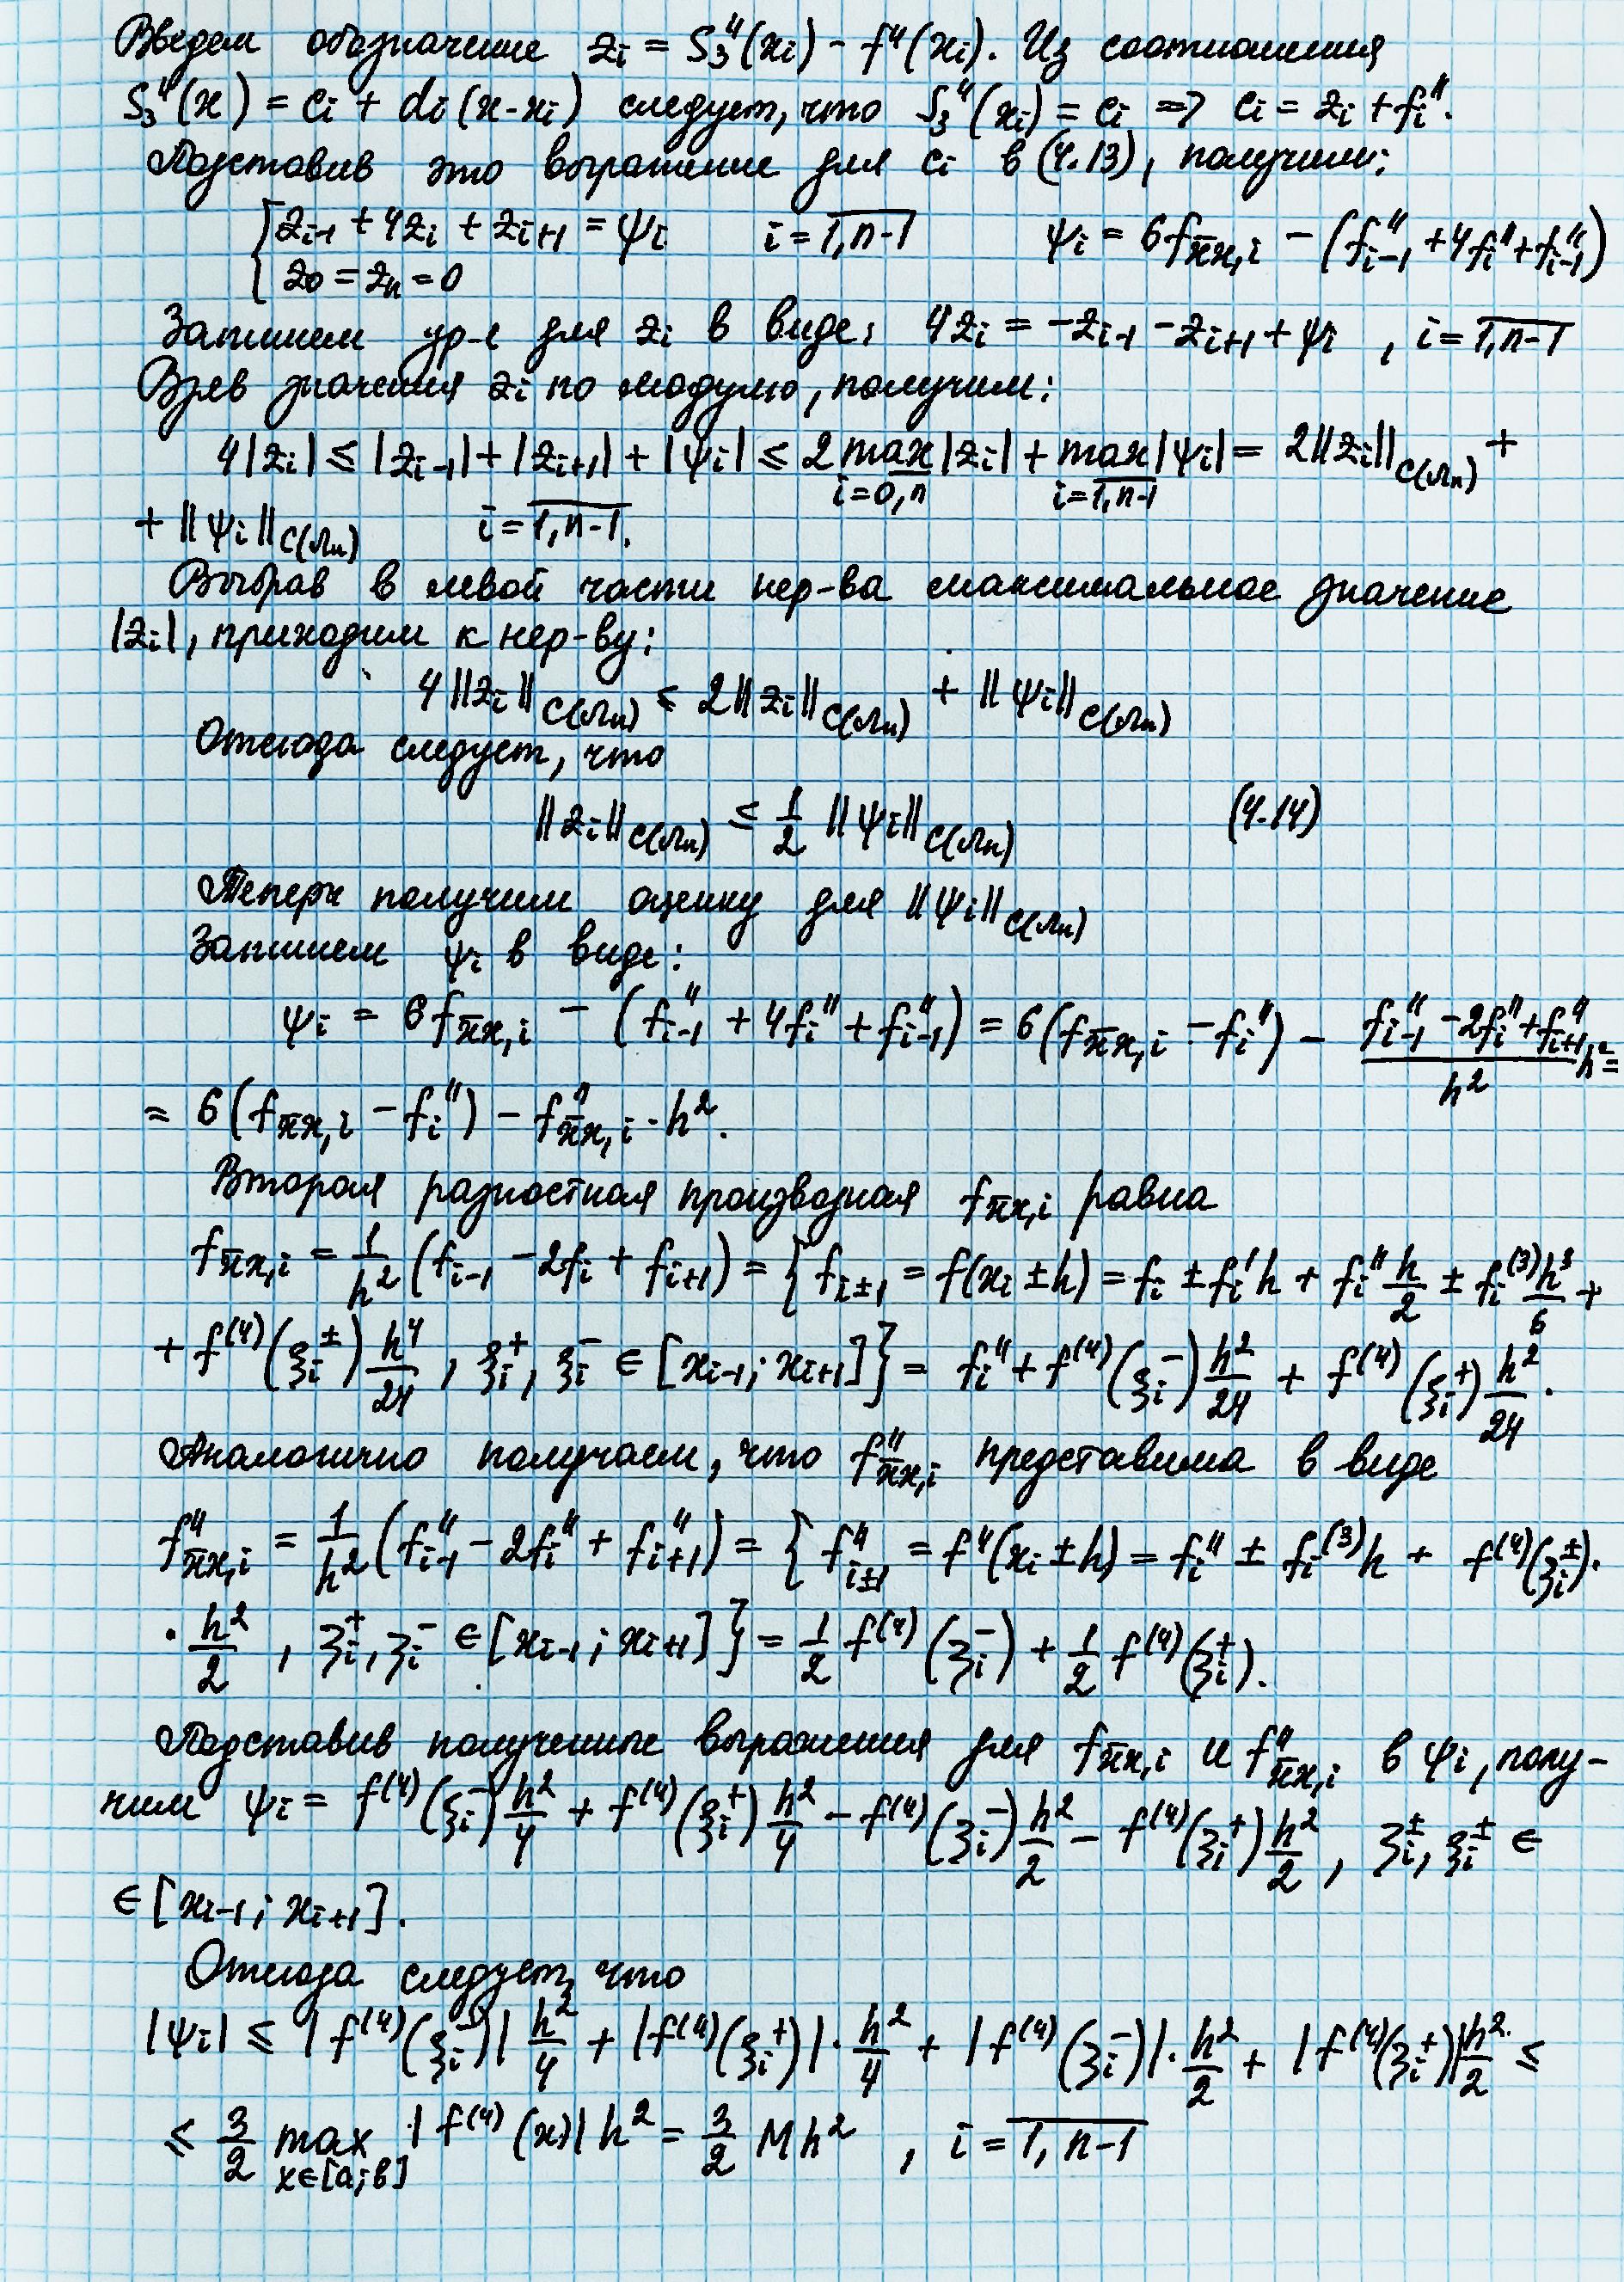 Введем обозначение zᵢ = S₃″(xᵢ) − f″(xᵢ). Из соотношения
S₃″(x) = cᵢ + dᵢ(x−xᵢ) следует, что S₃″(xᵢ) = cᵢ => cᵢ = zᵢ + fᵢ″.
Подставив это выражение для cᵢ в (4.13), получим:
{ zᵢ₋₁ + 4zᵢ + zᵢ₊₁ = ψᵢ i = \overline{1,n−1} ψᵢ = 6f_{x̄x,i} − (f″ᵢ₋₁ + 4fᵢ″ + f″ᵢ₋₁)
z₀ = zₙ = 0
Запишем ур-е для zᵢ в виде: 4zᵢ = −zᵢ₋₁ − zᵢ₊₁ + ψᵢ , i = \overline{1,n−1}
Взяв значения zᵢ по модулю, получим:
4|zᵢ| ≤ |zᵢ₋₁| + |zᵢ₊₁| + |ψᵢ| ≤ 2 max_{i=\overline{0,n}} |zᵢ| + max_{i=\overline{1,n−1}} |ψᵢ| = 2||zᵢ||_{C(Λₙ)} +
+ ||ψᵢ||_{C(Λₙ)} i = \overline{1,n−1}.
Выбрав в левой части нер-ва максимальное значение
|zᵢ|, приходим к нер-ву:
4||zᵢ||_{C(Λₙ)} ≤ 2||zᵢ||_{C(Λₙ)} + ||ψᵢ||_{C(Λₙ)}
Отсюда следует, что
||zᵢ||_{C(Λₙ)} ≤ \frac{1}{2} ||ψᵢ||_{C(Λₙ)} (4.14)
Теперь получим оценку для ||ψᵢ||_{C(Λₙ)}
Запишем ψᵢ в виде:
ψᵢ = 6f_{x̄x,i} − (f″ᵢ₋₁ + 4fᵢ″ + f″ᵢ₋₁) = 6(f_{x̄x,i} − fᵢ″) − \frac{f″ᵢ₋₁ − 2fᵢ″ + f″ᵢ₊₁}{h²} h² =
= 6(f_{x̄x,i} − fᵢ″) − f″_{x̄x,i} · h².
Вторая разностная производная f_{x̄x,i} равна
f_{x̄x,i} = \frac{1}{h²} (fᵢ₋₁ − 2fᵢ + fᵢ₊₁) = { fᵢ±₁ = f(xᵢ ± h) = fᵢ ± fᵢ′h + fᵢ″ \frac{h}{2} ± fᵢ⁽³⁾ \frac{h³}{6} +
+ f⁽⁴⁾(ξᵢ^±) \frac{h⁴}{24} , ξᵢ⁺, ξᵢ⁻ ∈ [xᵢ₋₁; xᵢ₊₁] } = fᵢ″ + f⁽⁴⁾(ξᵢ⁻) \frac{h²}{24} + f⁽⁴⁾(ξᵢ⁺) \frac{h²}{24}.
Аналогично получаем, что f″_{x̄x,i} представима в виде
f″_{x̄x,i} = \frac{1}{h²} (f″ᵢ₋₁ − 2fᵢ″ + f″ᵢ₊₁) = { f″ᵢ±₁ = f″(xᵢ ± h) = fᵢ″ ± fᵢ⁽³⁾h + f⁽⁴⁾(ζᵢ^±)·
· \frac{h²}{2} , ζᵢ⁺, ζᵢ⁻ ∈ [xᵢ₋₁; xᵢ₊₁] } = \frac{1}{2} f⁽⁴⁾(ζᵢ⁻) + \frac{1}{2} f⁽⁴⁾(ζᵢ⁺).
Подставив полученные выражения для f_{x̄x,i} и f″_{x̄x,i} в ψᵢ, полу-
чим ψᵢ = f⁽⁴⁾(ξᵢ⁻) \frac{h²}{4} + f⁽⁴⁾(ξᵢ⁺) \frac{h²}{4} − f⁽⁴⁾(ζᵢ⁻) \frac{h²}{2} − f⁽⁴⁾(ζᵢ⁺) \frac{h²}{2} , ζᵢ^±, ξᵢ^± ∈
∈ [xᵢ₋₁; xᵢ₊₁].
Отсюда следует, что
|ψᵢ| ≤ |f⁽⁴⁾(ξᵢ⁻)| \frac{h²}{4} + |f⁽⁴⁾(ξᵢ⁺)| · \frac{h²}{4} + |f⁽⁴⁾(ζᵢ⁻)| · \frac{h²}{2} + |f⁽⁴⁾(ζᵢ⁺)| \frac{h²}{2} ≤
≤ \frac{3}{2} max_{x∈[a;b]} |f⁽⁴⁾(x)| h² = \frac{3}{2} M h² , i = \overline{1,n−1}